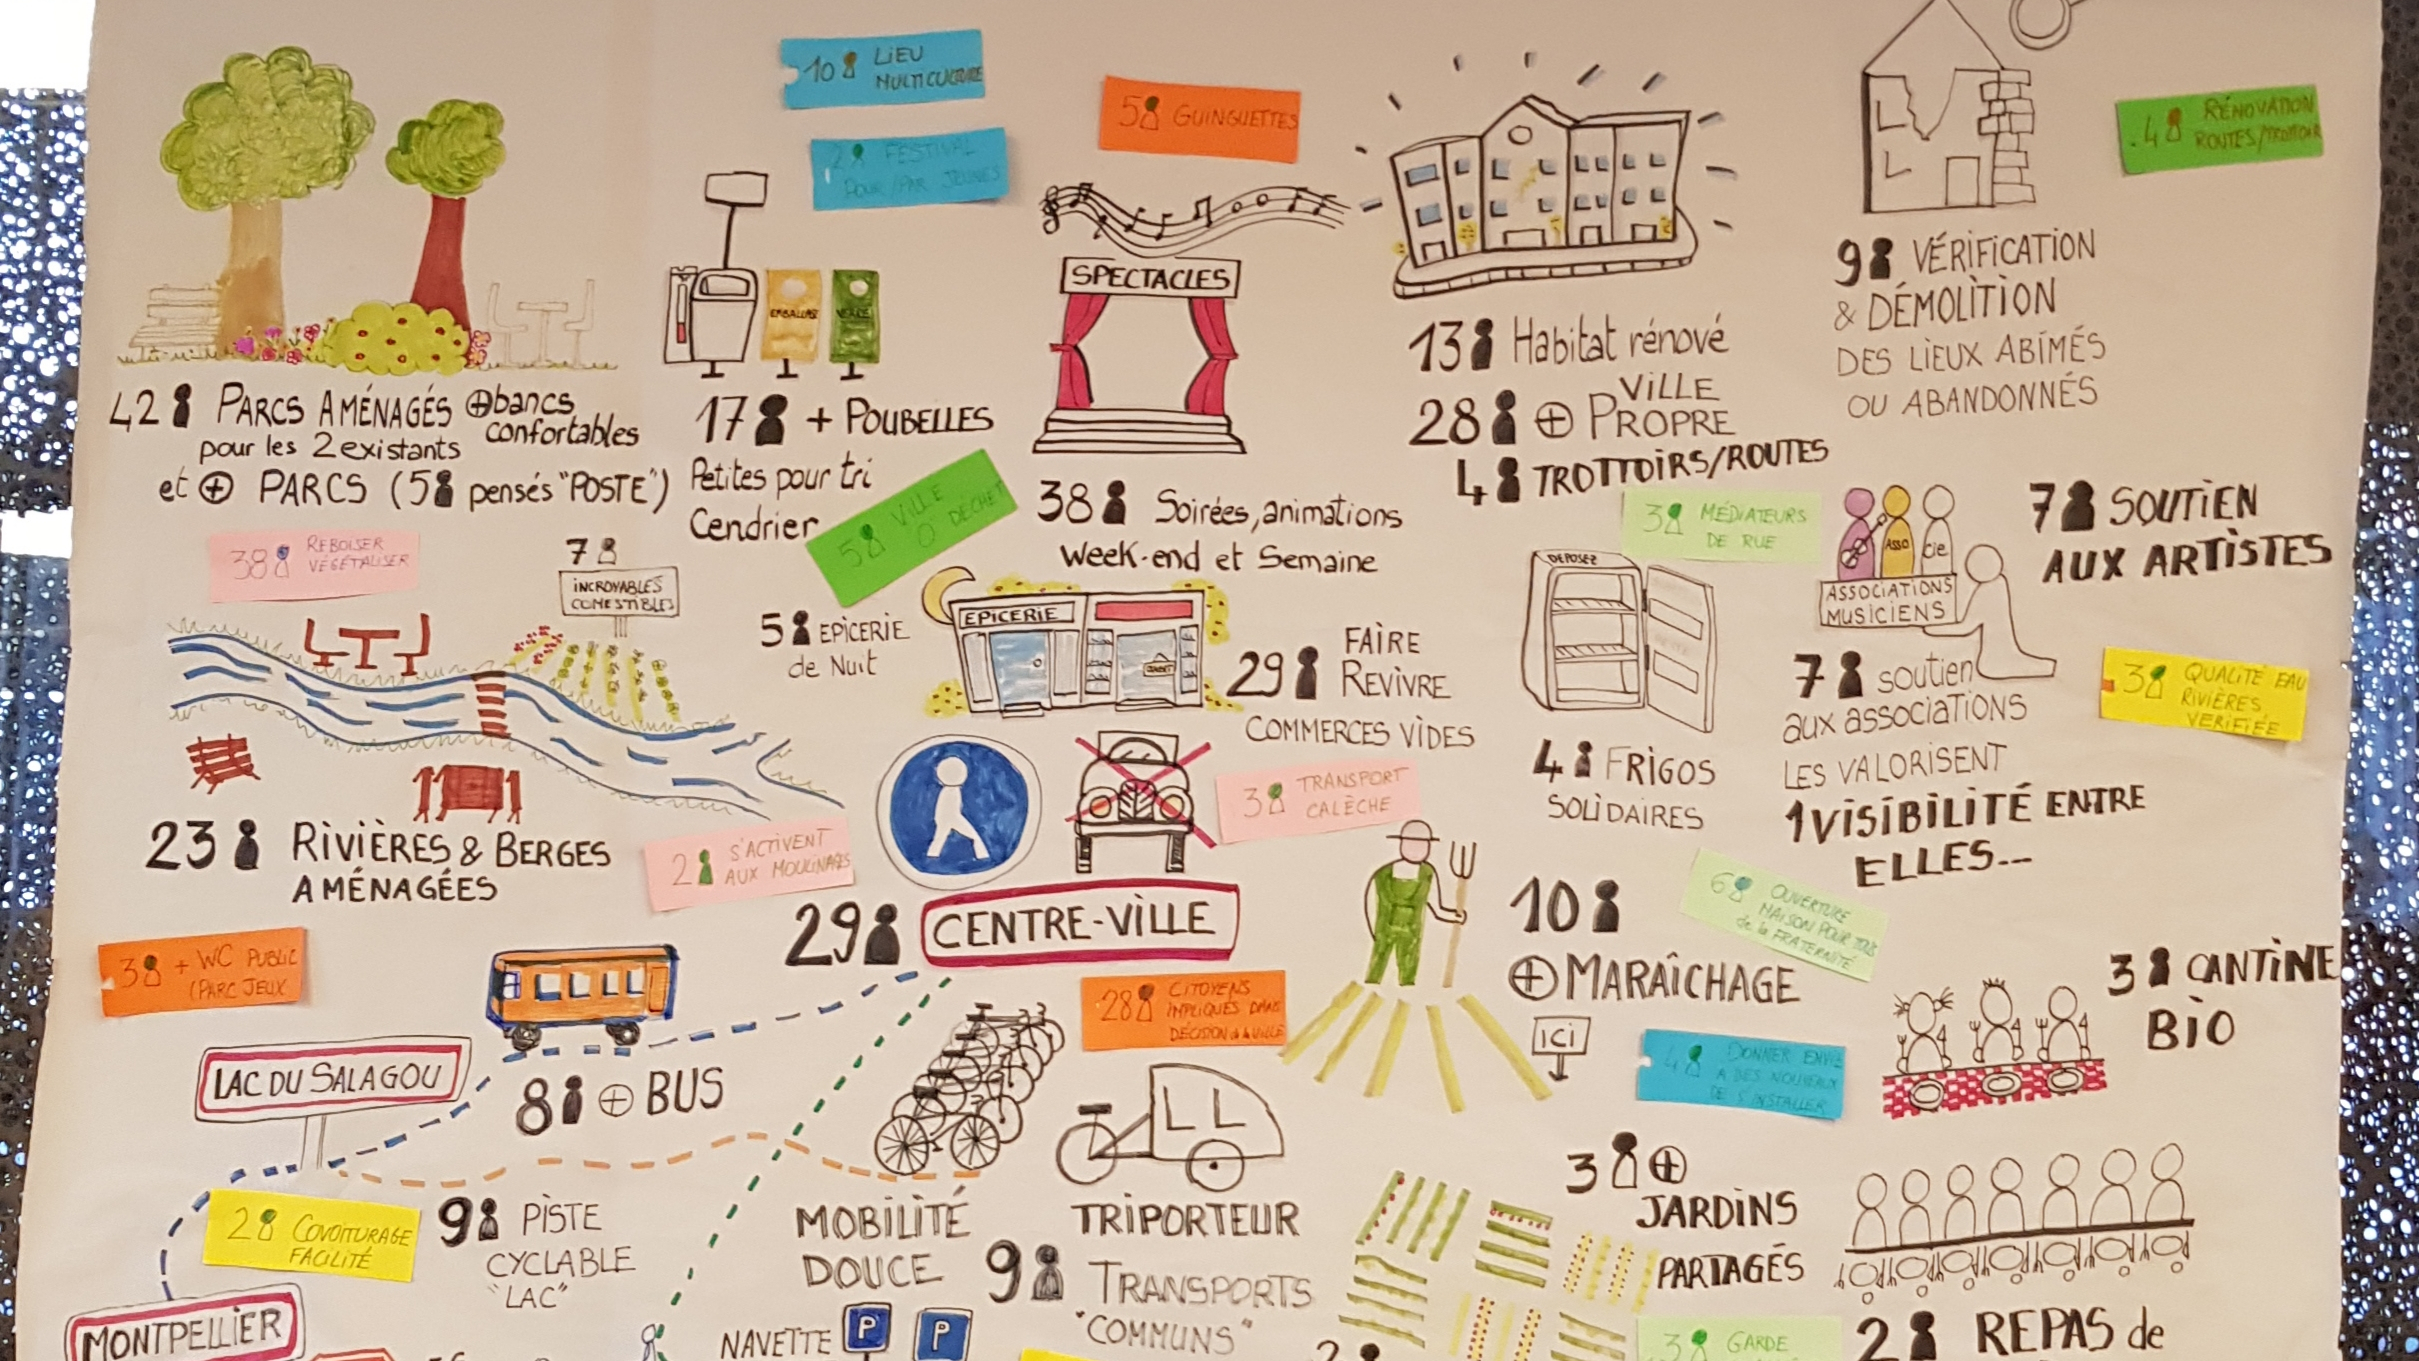 10 LIEU
MULTICULTURE
2 FESTIVAL
POUR/PAR JEUNES
5 GUINGUETTES
4 RÉNOVATION
ROUTES/TROTTOIR
42 PARCS AMÉNAGÉS ⊕ bancs
confortables
pour les 2 existants
et ⊕ PARCS (5 pensés "POSTE")
EMBALLAGE
VERRE
17 + POUBELLES
Petites pour tri
Cendrier
5 VILLE
0 DÉCHET
SPECTACLES
38 Soirées, animations
Week-end et Semaine
13 Habitat rénové
28 ⊕ VILLE
PROPRE
4 TROTTOIRS/ROUTES
9 VÉRIFICATION
& DÉMOLITION
DES LIEUX ABÎMÉS
OU ABANDONNÉS
38 REBOISER
VÉGÉTALISER
7
INCROYABLES
COMESTIBLES
23 RIVIÈRES & BERGES
AMÉNAGÉES
2 S'ACTIVENT
AUX MOULINAGES
5 EPICERIE
de Nuit
EPICERIE
29 FAIRE
REVIVRE
COMMERCES VIDES
3 MÉDIATEURS
DE RUE
DEPOSEZ
4 FRIGOS
SOLIDAIRES
ASSO
Cie
ASSOCIATIONS
MUSICIENS
7 SOUTIEN
AUX ARTISTES
7 soutien
aux associations
LES VALORISENT
1 VISIBILITÉ ENTRE
ELLES---
3 QUALITÉ EAU
RIVIÈRES
VERIFIÉE
3 TRANSPORT
CALÈCHE
29 CENTRE-VILLE
3 + WC PUBLIC
(PARC JEUX
LAC DU SALAGOU
8 ⊕ BUS
28 CITOYENS
IMPLIQUÉS DANS
DÉCISION de la VILLE
10
⊕ MARAÎCHAGE
ICI
6 OUVERTURE
MAISON POUR TOUS
de la FRATERNITÉ
4 DONNER ENVIE
A DES NOUVEAUX
DE S'INSTALLER
3 CANTINE
BIO
2 COVOITURAGE
FACILITÉ
9 PISTE
CYCLABLE
"LAC"
MONTPELLIER
MOBILITÉ
DOUCE
TRIPORTEUR
9 TRANSPORTS
"COMMUNS"
NAVETTE P P
3 ⊕
JARDINS
PARTAGÉS
3 GARDE
2 REPAS de